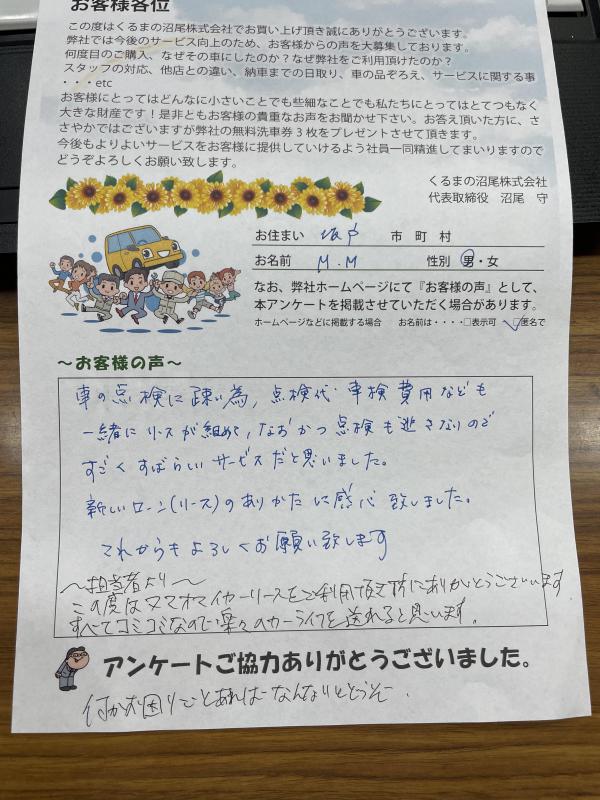 お客様各位
この度はくるまの沼尾株式会社でお買い上げ頂き誠にありがとうございます。
弊社では今後のサービス向上のため、お客様からの声を大募集しております。
何度目のご購入、なぜその車にしたのか？なぜ弊社をご利用頂けたのか？
スタッフの対応、他店との違い、納車までの日取り、車の品ぞろえ、サービスに関する事
・・・etc
お客様にとってはどんなに小さいことでも些細なことでも私たちにとってはとてつもなく
大きな財産です！是非ともお客様の貴重なお声をお聞かせ下さい。お答え頂いた方に、さ
さやかではございますが弊社の無料洗車券３枚をプレゼントさせて頂きます。
今後もよりよいサービスをお客様に提供していけるよう社員一同精進してまいりますので
どうぞよろしくお願い致します。
くるまの沼尾株式会社
代表取締役 沼尾 守
お住まい 坂戸 市 町 村
お名前 M.M 性別 男・女
なお、弊社ホームページにて『お客様の声』として、
本アンケートを掲載させていただく場合があります。
ホームページなどに掲載する場合 お名前は・・・・□表示可 □匿名で
～お客様の声～
車の点検に疎い為、点検代、車検費用なども
一緒にリースが組めて、なおかつ点検も逃さないので
すごくすばらしいサービスだと思いました。
新しいローン(リース)のありかたに感心致しました。
これからもよろしくお願い致します
～担当者より～
この度はヌマオマイカーリースをご利用頂き誠にありがとうございます
すべてコミコミなので楽々のカーライフを送れると思います。
アンケートご協力ありがとうございました。
何かお困りごとあればなんなりとどうぞ.